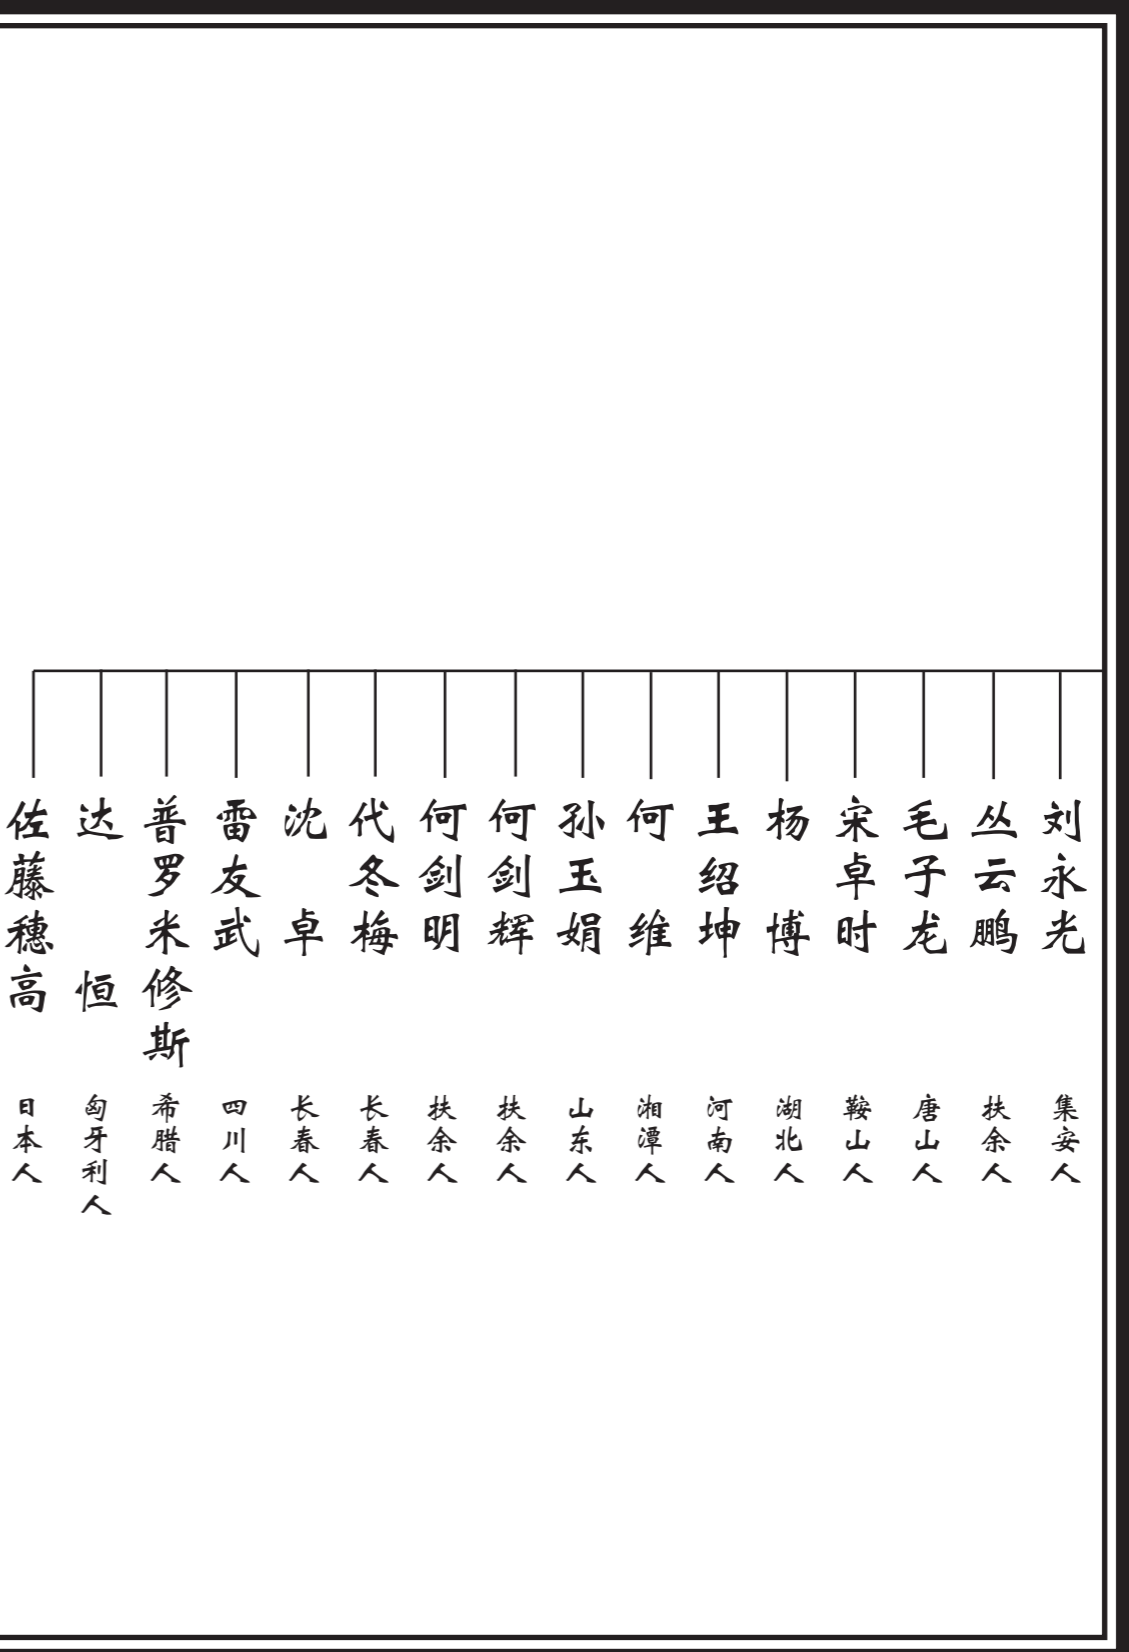 刘永光 集安人
丛云鹏 扶余人
毛子龙 唐山人
宋卓时 鞍山人
杨博 湖北人
王绍坤 河南人
何维 湘潭人
孙玉娟 山东人
何剑辉 扶余人
何剑明 扶余人
代冬梅 长春人
沈卓 长春人
雷友武 四川人
普罗米修斯 希腊人
达恒 匈牙利人
佐藤穗高 日本人